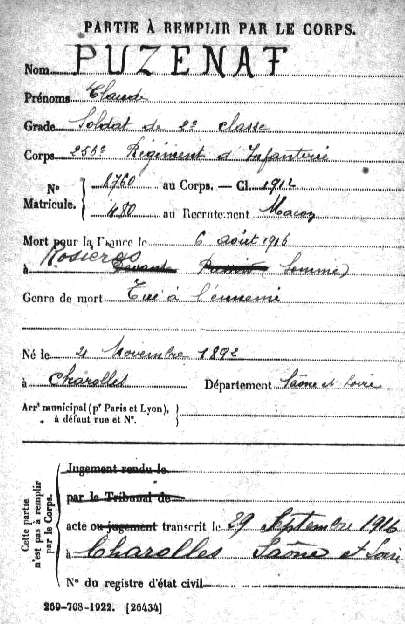 PARTIE À REMPLIR PAR LE CORPS.
Nom PUZENAT
Prénoms Claude
Grade Soldat de 2e classe
Corps 255e Régiment d'Infanterie
No Matricule. { 8760 au Corps. — Cl. 1912
480 au Recrutement Macon
Mort pour la France le 6 août 1916
à Rosieres Devant (Somme)
Genre de mort Tué à l'ennemi
Né le 4 Novembre 1892
à Charolles Département Saône et Loire
Arrt municipal (pr Paris et Lyon), à défaut rue et No.
Cette partie n'est pas à remplir par le Corps.
Jugement rendu le
par le Tribunal de
acte ou jugement transcrit le 29 Septembre 1916
à Charolles Saône et Loire
No du registre d'état civil
269-708-1922. [26434]